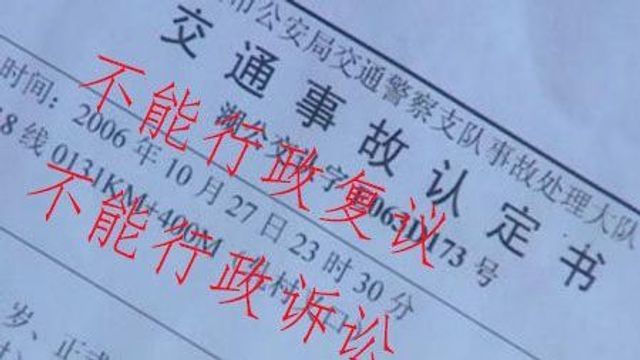 市公安局交通警察支队事故处理大队
交通事故认定书
湖公交认字
0173号
时间：2006年10月27日23时30分
8线0131KM+400M
村
口
岁、正
不能行政复议
不能行政诉讼